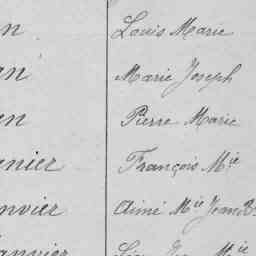 n Louis Marie
n Marie Joseph
en Pierre Marie
enier François Mie
nvier Aimé Mie Jean
anvier